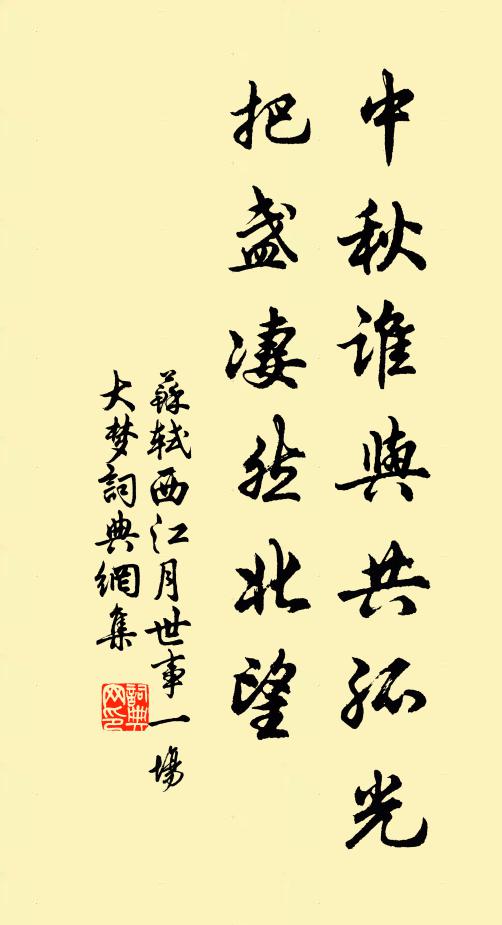 中秋誰與共孤光
把盞淒然北望
蘇軾西江月世事一場
大梦詞典網集
詞典网印